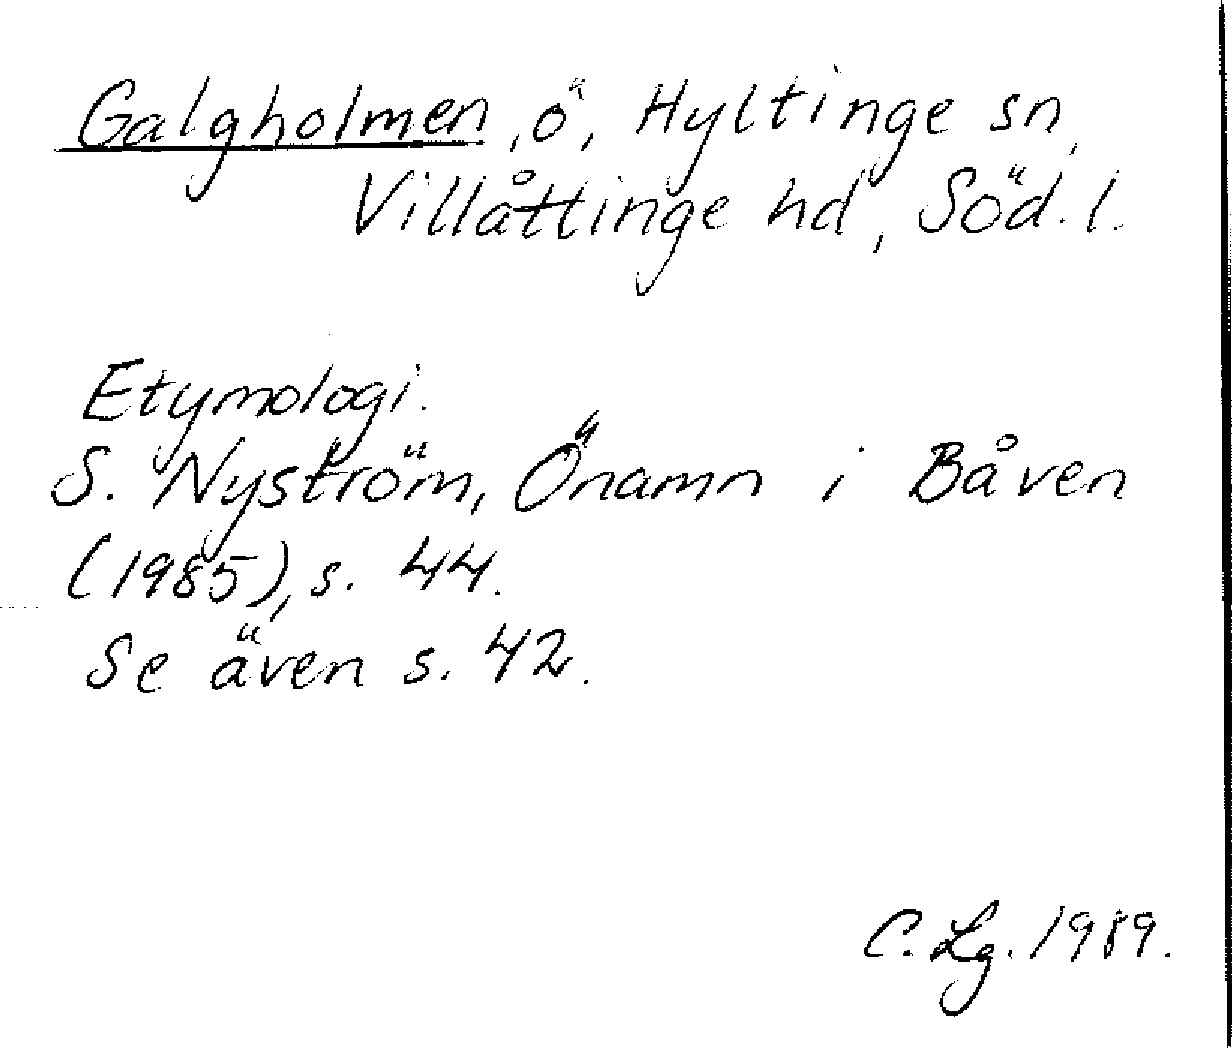 Galgholmen, ö, Hyltinge sn,
Villåttinge hd, Söd. l.
Etymologi.
S. Nyström, Önamn i Båven
(1985), s. 44.
Se även s. 42.
C. Lg. 1989.